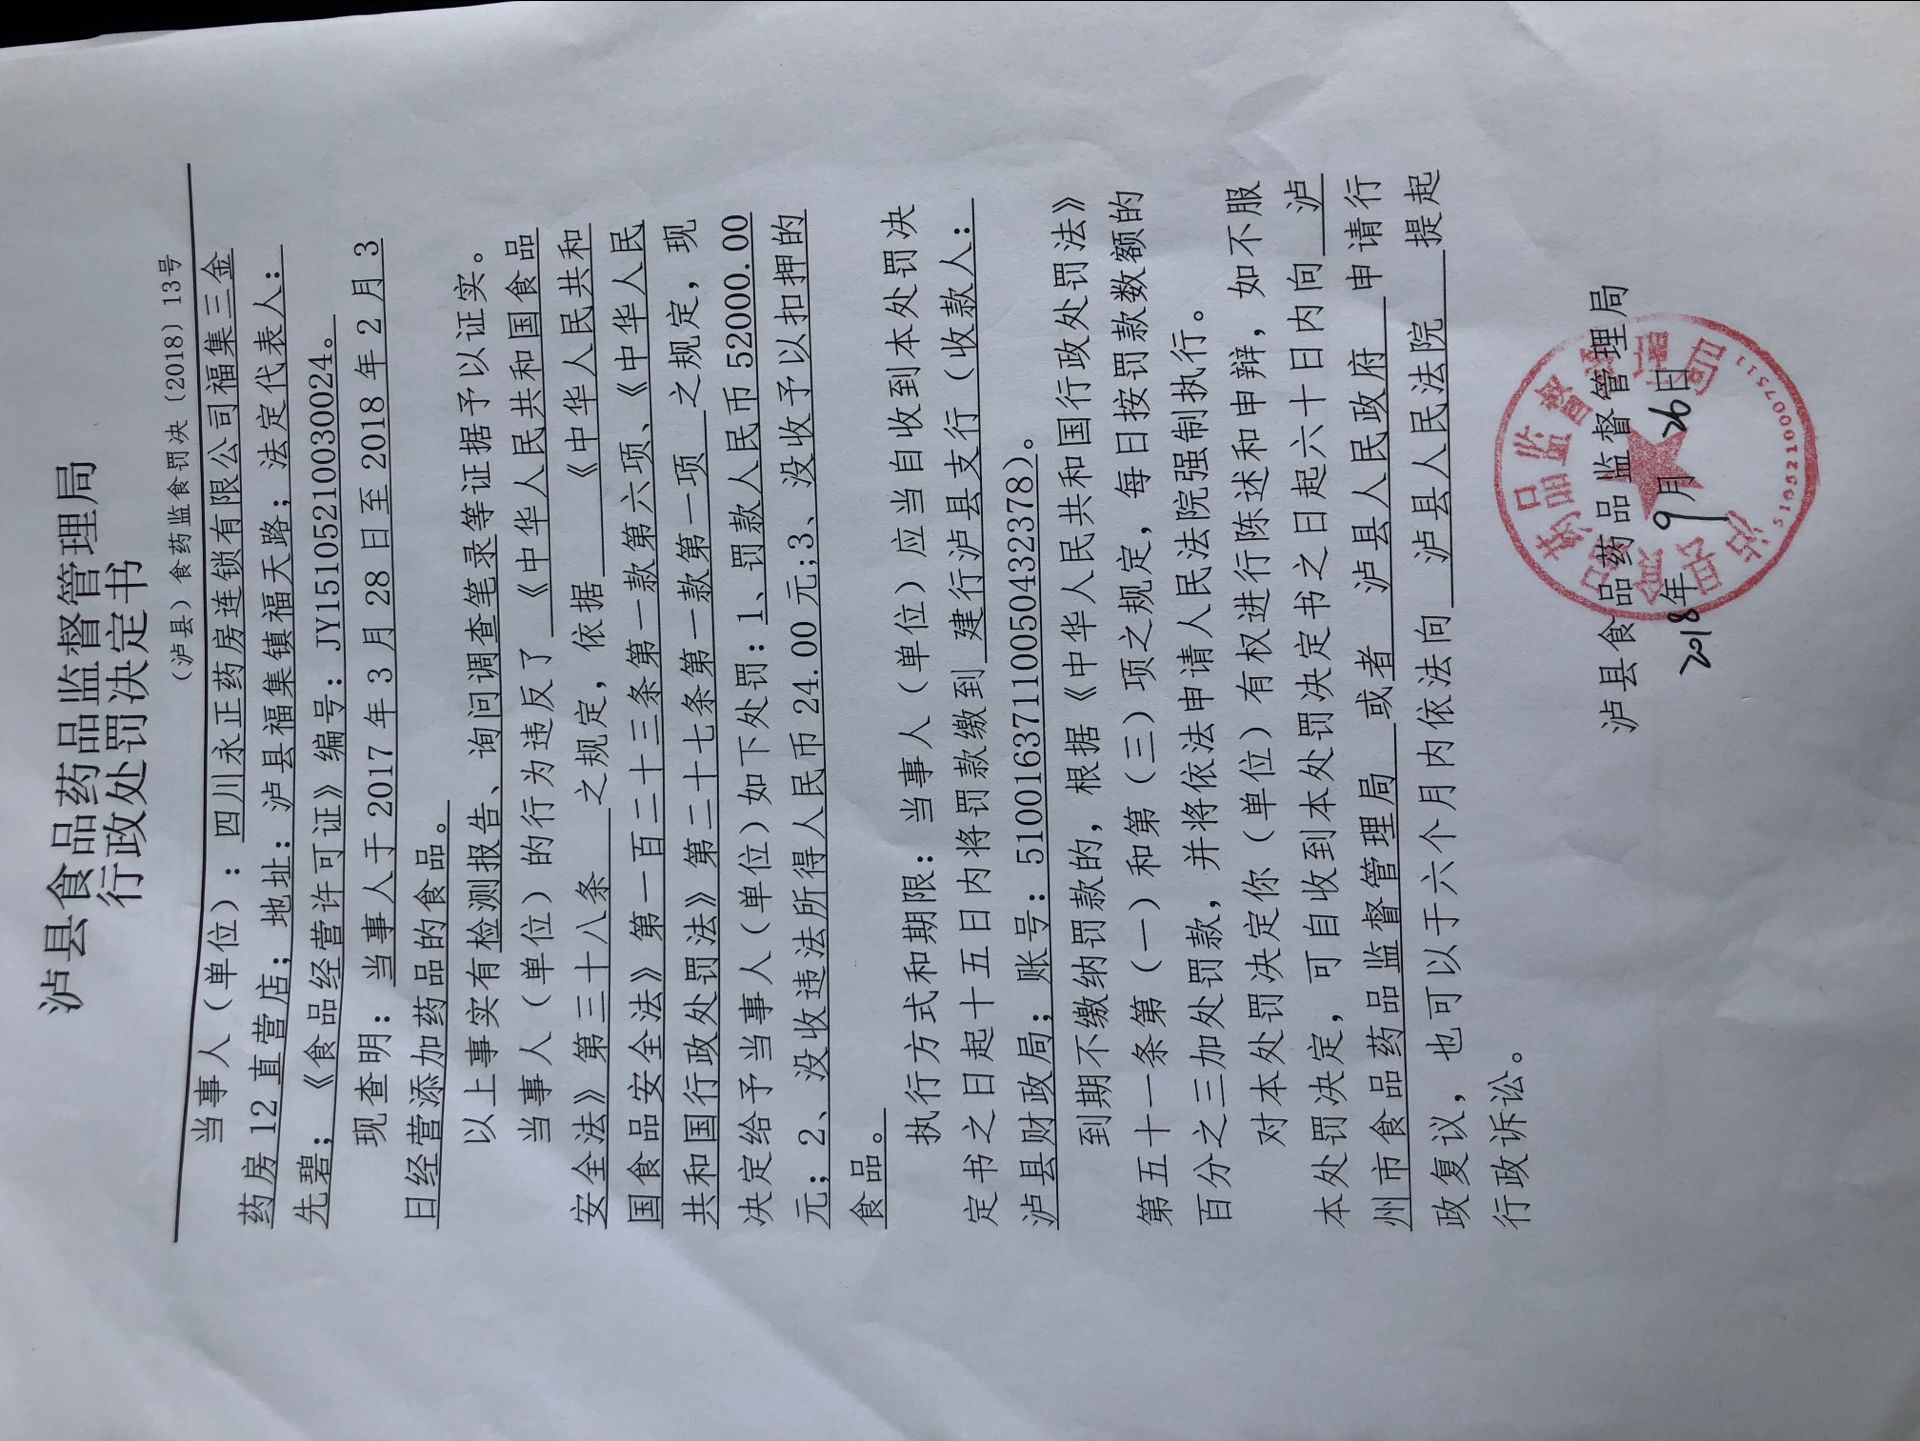 泸县食品药品监督管理局
行政处罚决定书
（泸县）食药监食罚决（2018）13号
当事人（单位）：四川永正药房连锁有限公司福集三金
药房12直营店；地址：泸县福集镇福天路；法定代表人：
先碧；《食品经营许可证》编号：JY15105210030024。
现查明：当事人于2017年3月28日至2018年2月3
日经营添加药品的食品。
以上事实有检测报告、询问调查笔录等证据予以证实。
当事人（单位）的行为违反了 《中华人民共和国食品
安全法》第三十八条 之规定，依据 《中华人民共和
国食品安全法》第一百二十三条第一款第六项、《中华人民
共和国行政处罚法》第二十七条第一款第一项 之规定，现
决定给予当事人（单位）如下处罚：1、罚款人民币52000.00
元；2、没收违法所得人民币24.00元;3、没收予以扣押的
食品。
执行方式和期限：当事人（单位）应当自收到本处罚决
定书之日起十五日内将罚款缴到 建行泸县支行（收款人：
泸县财政局；账号：51001637110050432378）。
到期不缴纳罚款的，根据《中华人民共和国行政处罚法》
第五十一条第（一）和第（三）项之规定，每日按罚款数额的
百分之三加处罚款，并将依法申请人民法院强制执行。
对本处罚决定你（单位）有权进行陈述和申辩，如不服
本处罚决定，可自收到本处罚决定书之日起六十日内向 泸
州市食品药品监督管理局 或者 泸县人民政府 申请行
政复议，也可以于六个月内依法向 泸县人民法院 提起
行政诉讼。
泸县食品药品监督管理局
2018年9月26日
泸县食品药品监督管理局
5105210007511